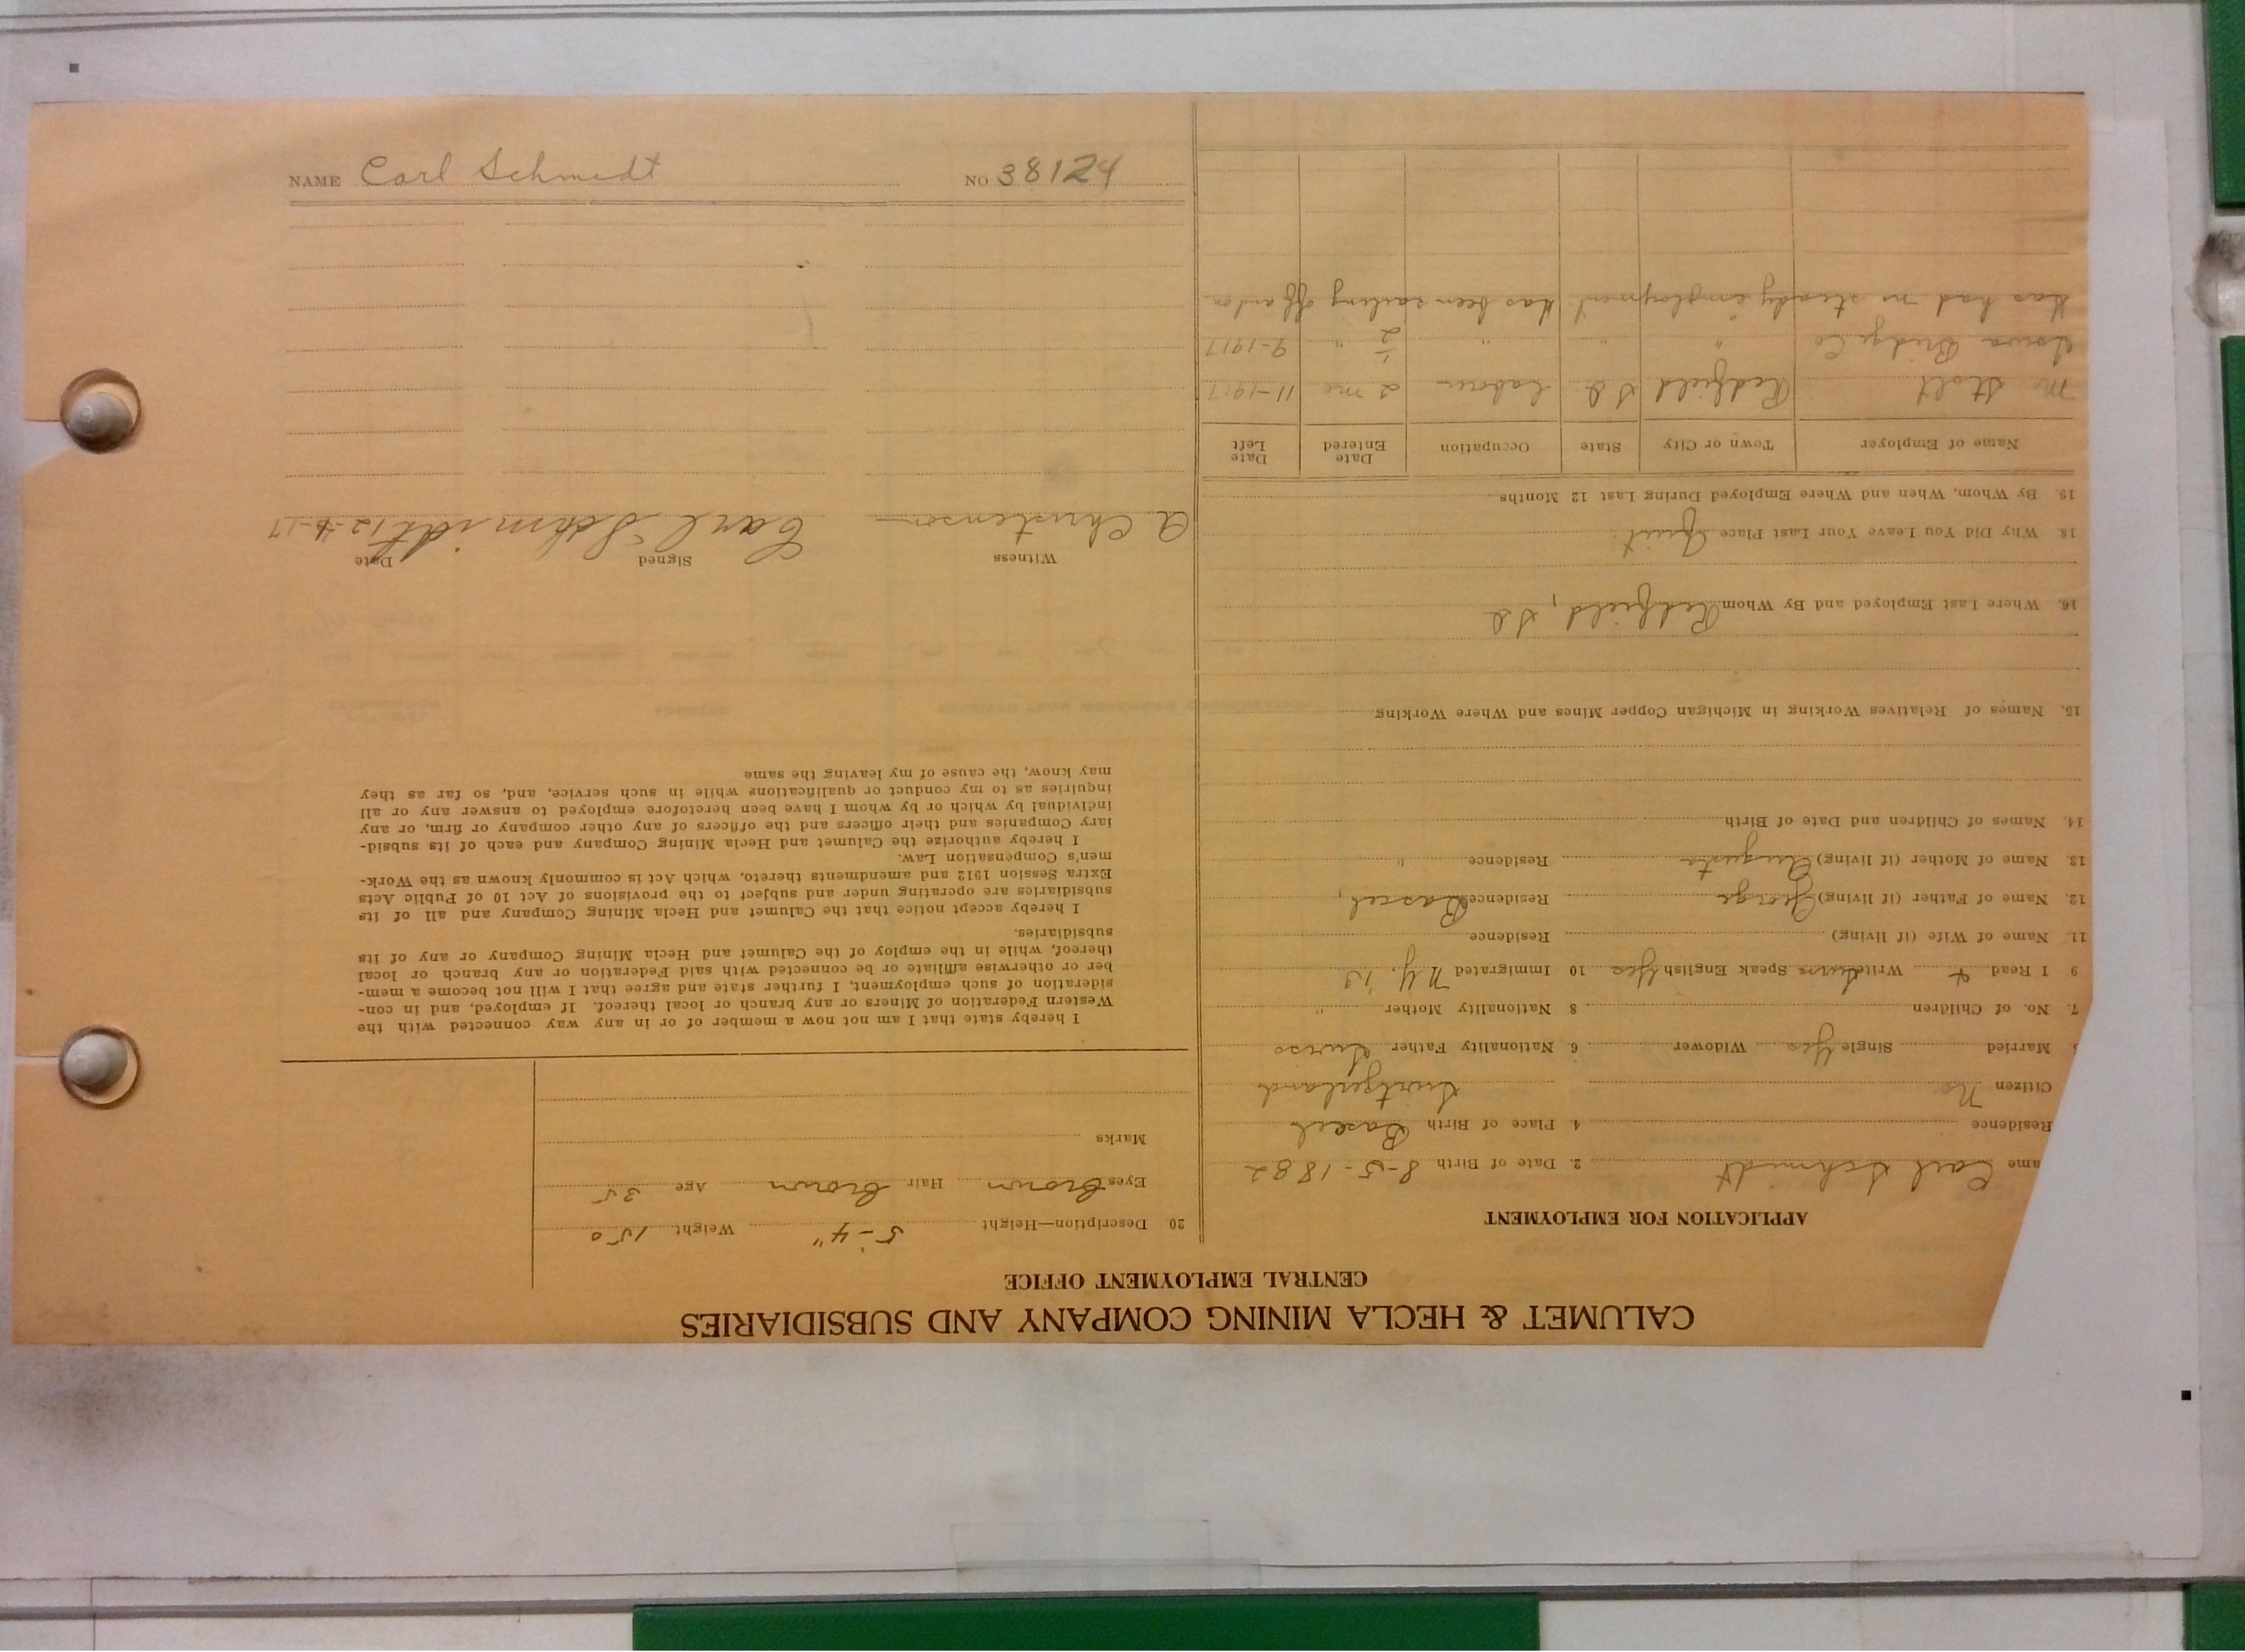 CALUMET & HECLA MINING COMPANY AND SUBSIDIARIES
CENTRAL EMPLOYMENT OFFICE
APPLICATION FOR EMPLOYMENT
ame Carl Schmidt 2. Date of Birth 8-5-1882
Residence 4. Place of Birth Basel
Citizen No Switzerland
Married Single Yes Widower 6 Nationality Father Swiss
7. No. of Children 8 Nationality Mother "
9 I Read & Write Swiss Speak English Yes 10 Immigrated N.Y. '13
11. Name of Wife (if living) Residence
12. Name of Father (if living) George Residence Basel,
13. Name of Mother (if living) Augusta Residence "
14. Names of Children and Date of Birth
15. Names of Relatives Working in Michigan Copper Mines and Where Working
16. Where Last Employed and By Whom Redfield, S D
18. Why Did You Leave Your Last Place Quit
19. By Whom, When and Where Employed During Last 12 Months
Name of Employer Town or City State Occupation Date Entered Date Left
Mr Stolt Redfield S D. Laborer 2 mo 11-1917
Iowa Bridge Co " " " 1/2 " 9-1917
Has had no steady employment. Has been sailing off and on.
20 Description—Height 5-4" Weight 150
Eyes Brown Hair Brown Age 35
Marks
I hereby state that I am not now a member of or in any way connected with the
Western Federation of Miners or any branch or local thereof. If employed, and in con-
sideration of such employment, I further state and agree that I will not become a mem-
ber or otherwise affiliate or be connected with said Federation or any branch or local
thereof, while in the employ of the Calumet and Hecla Mining Company or any of its
subsidiaries.
I hereby accept notice that the Calumet and Hecla Mining Company and all of its
subsidiaries are operating under and subject to the provisions of Act 10 of Public Acts
Extra Session 1912 and amendments thereto, which Act is commonly known as the Work-
men's Compensation Law.
I hereby authorize the Calumet and Hecla Mining Company and each of its subsid-
iary Companies and their officers and the officers of any other company or firm, or any
individual by which or by whom I have been heretofore employed to answer any or all
inquiries as to my conduct or qualifications while in such service, and, so far as they
may know, the cause of my leaving the same
Witness Signed Date
A Christenson Carl Schmidt 12-4-17
NAME Carl Schmidt NO 38124